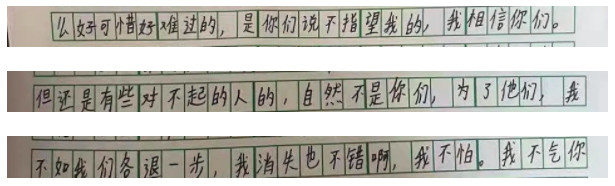 么好可惜好难过的，是你们说不指望我的，我相信你们。
但还是有些对不起的人的，自然不是你们，为了他们，我
不如我们各退一步，我消失也不错啊，我不怕。我不气你